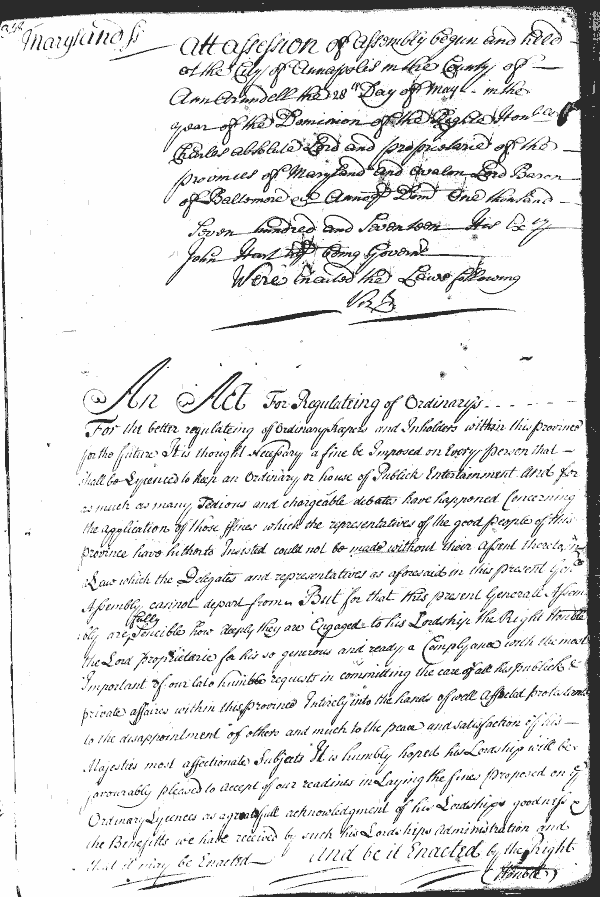 Maryland ss
Att a Session of Assembly begun and held
at the City of Annapolis in the County of
Ann Arundell the 28th Day of May in the
year of the Dominion of the Right Honble
Charles absolute Lord and proprietarie of the
provinces of Maryland and Avalon Lord Baron
of Baltemore &c Annoq Dom One thousand
Seven hundred and Seventeen His
John Hart being Govern
Were Enacted the Laws following
Viz
An Act For Regulateing of Ordinarys
For the better regulateing of Ordinary keepers and Inholders within this province
for the future It is thought Necessary a fine be Imposed on Every person that
shall be Lycenced to keep an Ordinary or house of Publick Entertainment And for
as much as many Tedious and chargeable debates have happened Concerning
the application of those ffines which the representatives of the good people of this
province have hitherto Insisted could not be made without their Assent thereto in
a Law which the Delegates and representatives as aforesaid in this present Gen
Assembly cannot depart from But for that this present Generall Assem
bly are fully Sencible how deeply they are Engaged to his Lordship the Right Honble
the Lord proprietarie for his so generous and ready a Complyance with the most
Important of our late humble requests in committing the care of all his publick &
private affaires within this province Entirely into the hands of well Affected protestants
to the disappointment of others and much to the peace and satisfaction of his
Majesties most affectionate Subjects It is humbly hoped his Lordship will be
favourably pleased to accept of our readiness in Laying the fines proposed on ye
Ordinary Lycences as a gratefull acknowledgment of his Lordships goodness &
the Benefitts we have received by such his Lordships administration and
that it may be Enacted And be it Enacted by the Right
Honble